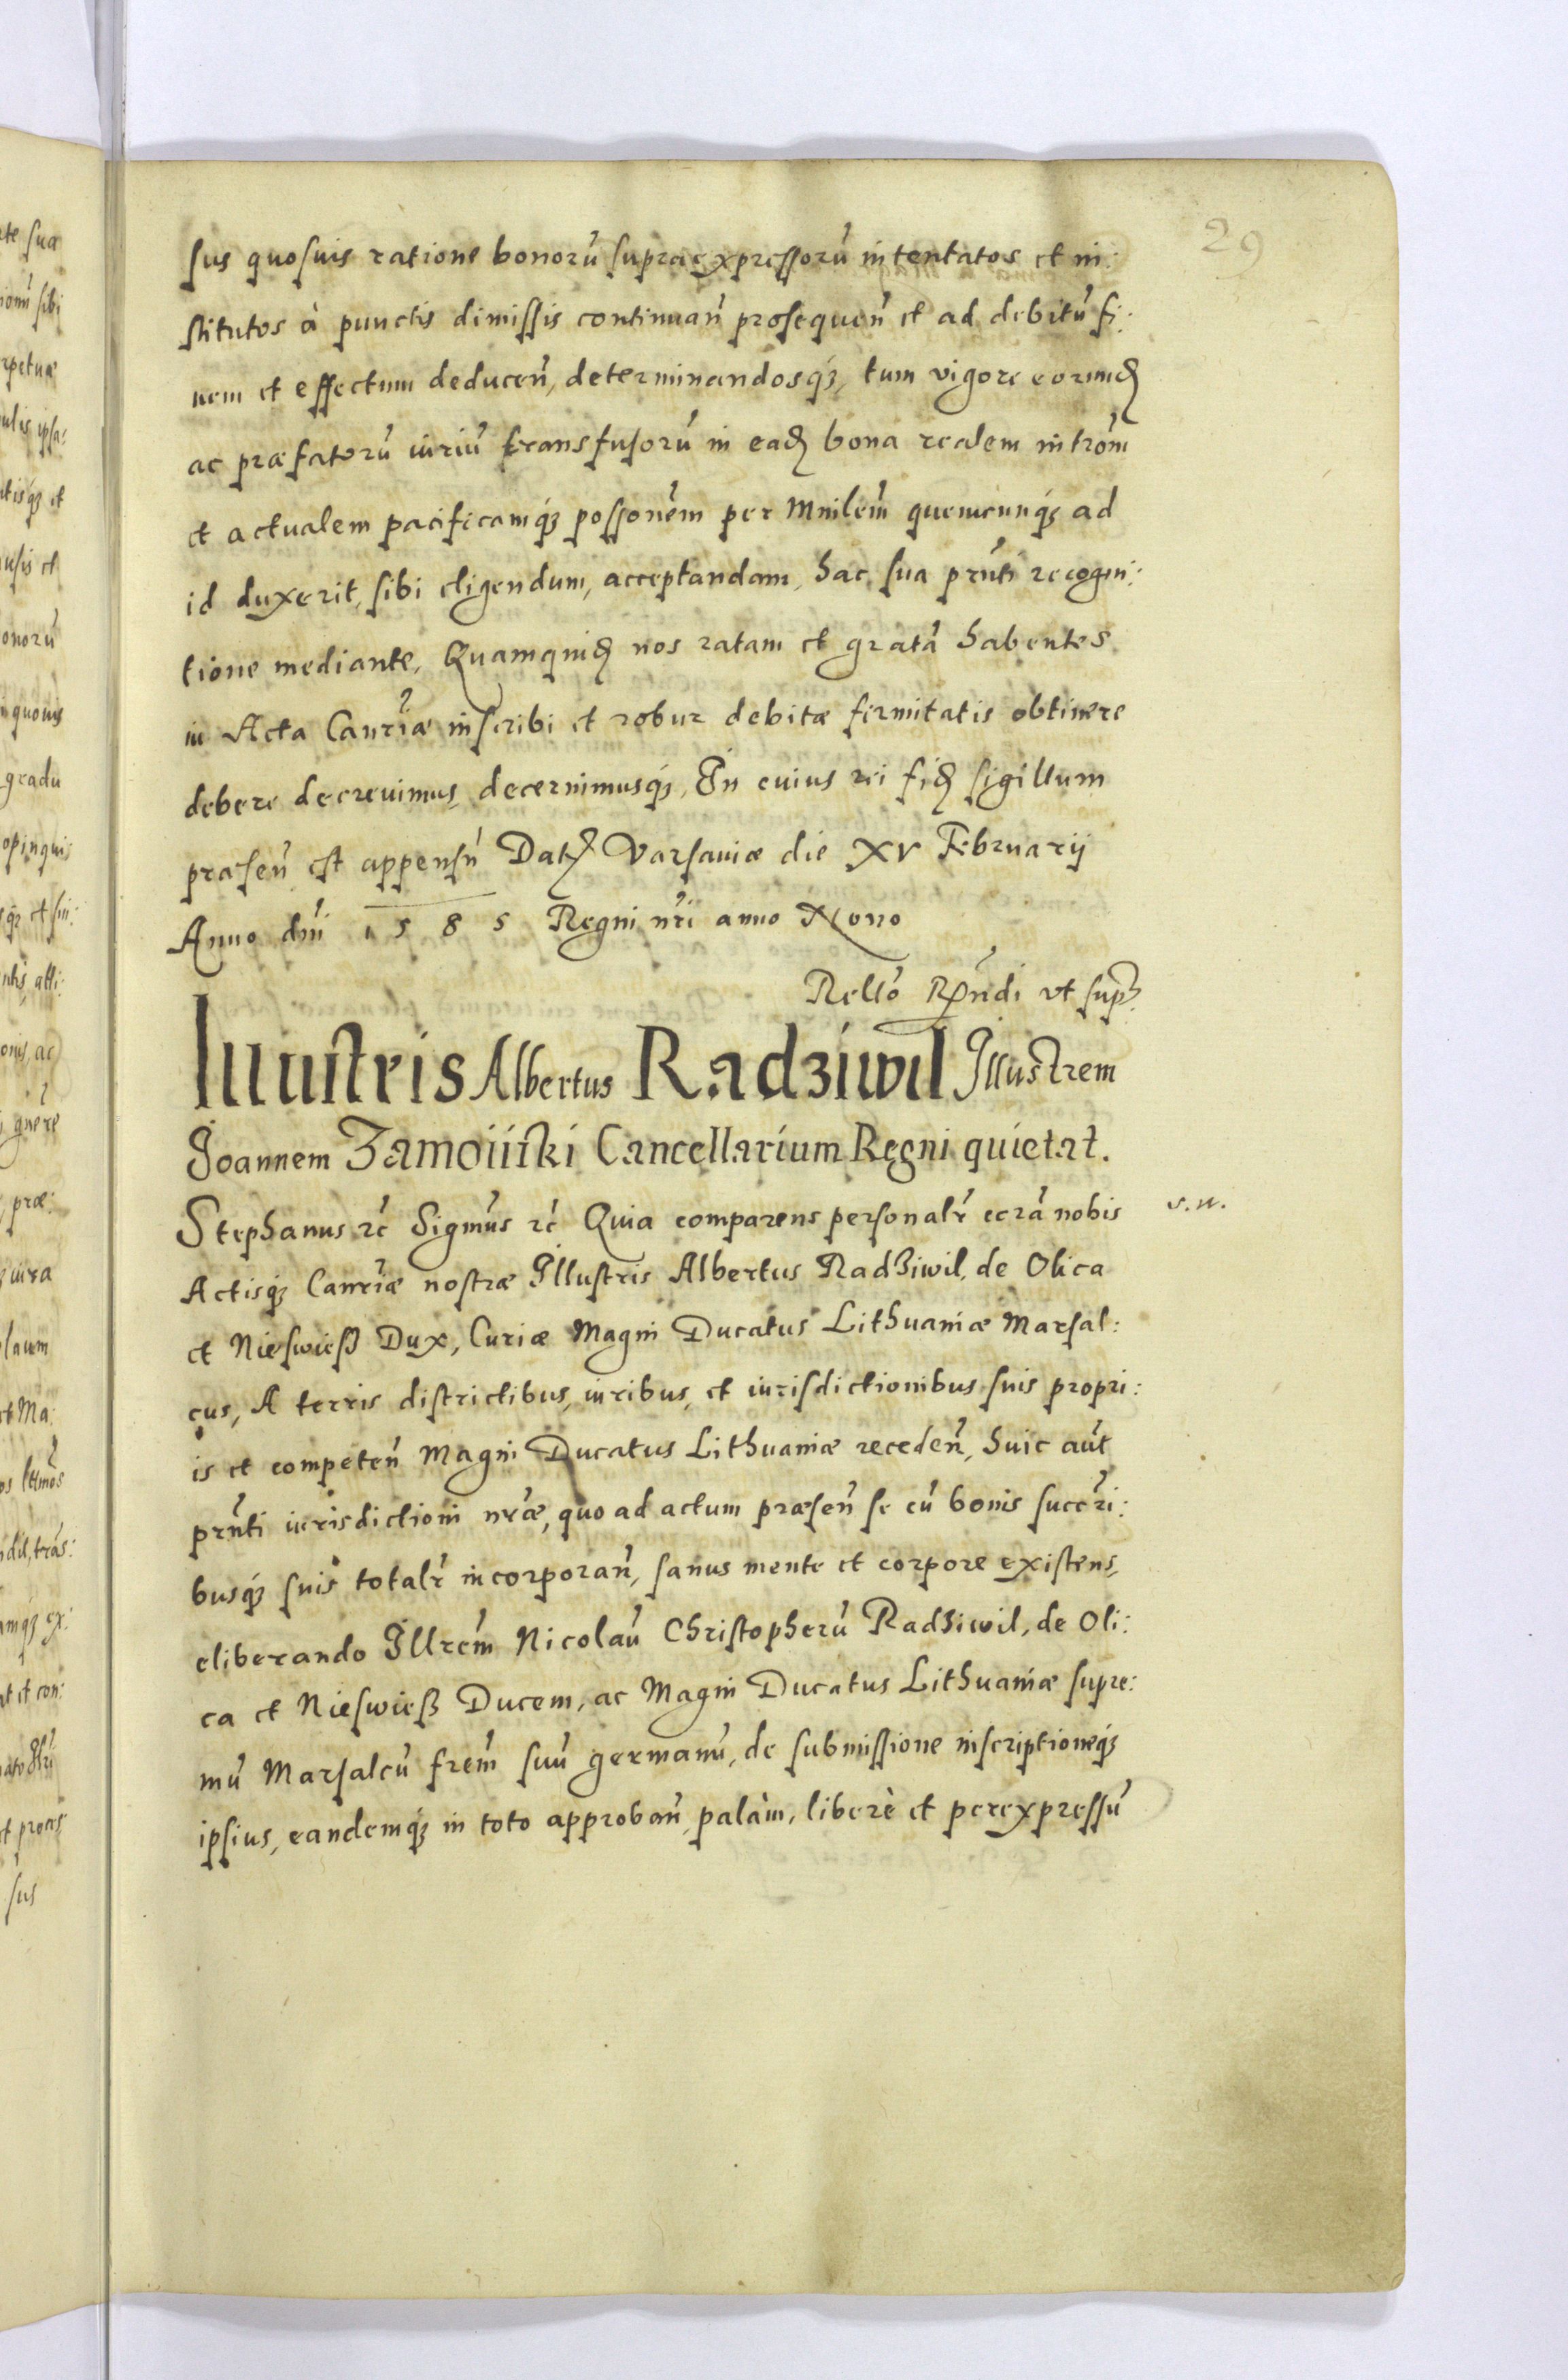 29
sus quosuis ratione bonorū supraexpressorū intentatos et in:
stitutos à punctis dimissis continuan̄ prosequen̄ et ad debitū fi:
nem et effectum deducen̄, determinandosq́3, tum vigore eorund
ac præfatorū iuriū transfusorū in ead bona realem introm̄
et actualem pacificamq́3 possonēm per Mnilem̄ quemcunq́3 ad
id duxerit, sibi eligendum, acceptandam, hac sua prn̄ti recogni:
tione mediante, Quamquid nos ratam et gratā habentes
in Acta Canrīæ inscribi et robur debitæ firmitatis obtinere
debere decreuimus, decernimusq́3, In cuius rei fid sigillum
præsen̄ est appensū Dat Varsauiæ die XV Februarij
Anno dn̄i 1585 Regni nr̄i anno Nono
Rellō Rp̄ndi vt sup
Illustris Albertus Radziwil Illustrem
Joannem Zamoiiski Cancellarium Regni quietat.
Stephanus rc̄ Sigm̄us rc̄ Quia comparens personalr̄ corā nobis
s. n.
Actisq́3 Canrīæ nostræ Illustris Albertus Radziwil, de Olica
et Nieswieß Dux, Curiæ Magni Ducatus Lithuaniæ Marsal:
cus, A terris districtibus, iuribus, et iurisdictionibus suis propri:
is et competen̄ Magni Ducatus Lithuaniæ receden̄, huic aūt
prn̄ti iurisdictioni nrǣ, quo ad actum præsen̄ se cū bonis succr̄i:
busq́3 suis totalr̄ incorporan̄, sanus mente et corpore existens,
eliberando Illrem̄ Nicolaū Christopherū Radziwil, de Oli:
ca et Nieswieß Ducem, ac Magni Ducatus Lithuaniæ supre:
mū Marsalcū frem̄ suū germanū, de submissione inscriptioneq́3
ipsius, eandemq́3 in toto approban̄, palàm, liberè et perexpressū